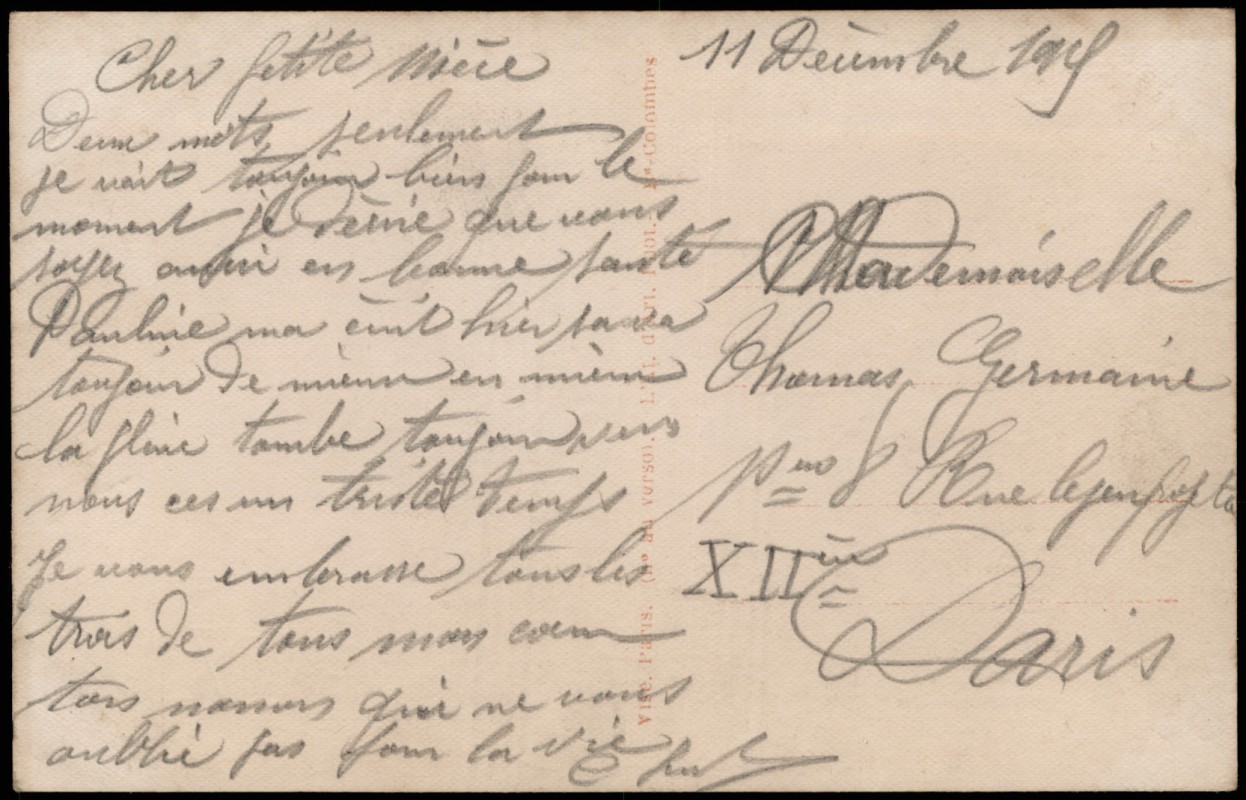 Cher petite Nièce
Deux mots seulement
je vait toujour bien pour le
moment je désire que vous
soyez aussi en bonne santé
Pauline ma écrit hier sa va
toujour de mieux en mieux
la pluie tombe toujour vers
nous ces un triste temps
Je vous embrasse tous les
trois de tous mon cœur
ton qui ne vous
oublie pas pour la vie
11 Décembre 1915
Mademoiselle
Thomas Germaine
8 Rue
XIIème
Paris
Visé. Paris. (No au verso). L'Ét. d'art. Phot. Bs-Colombes